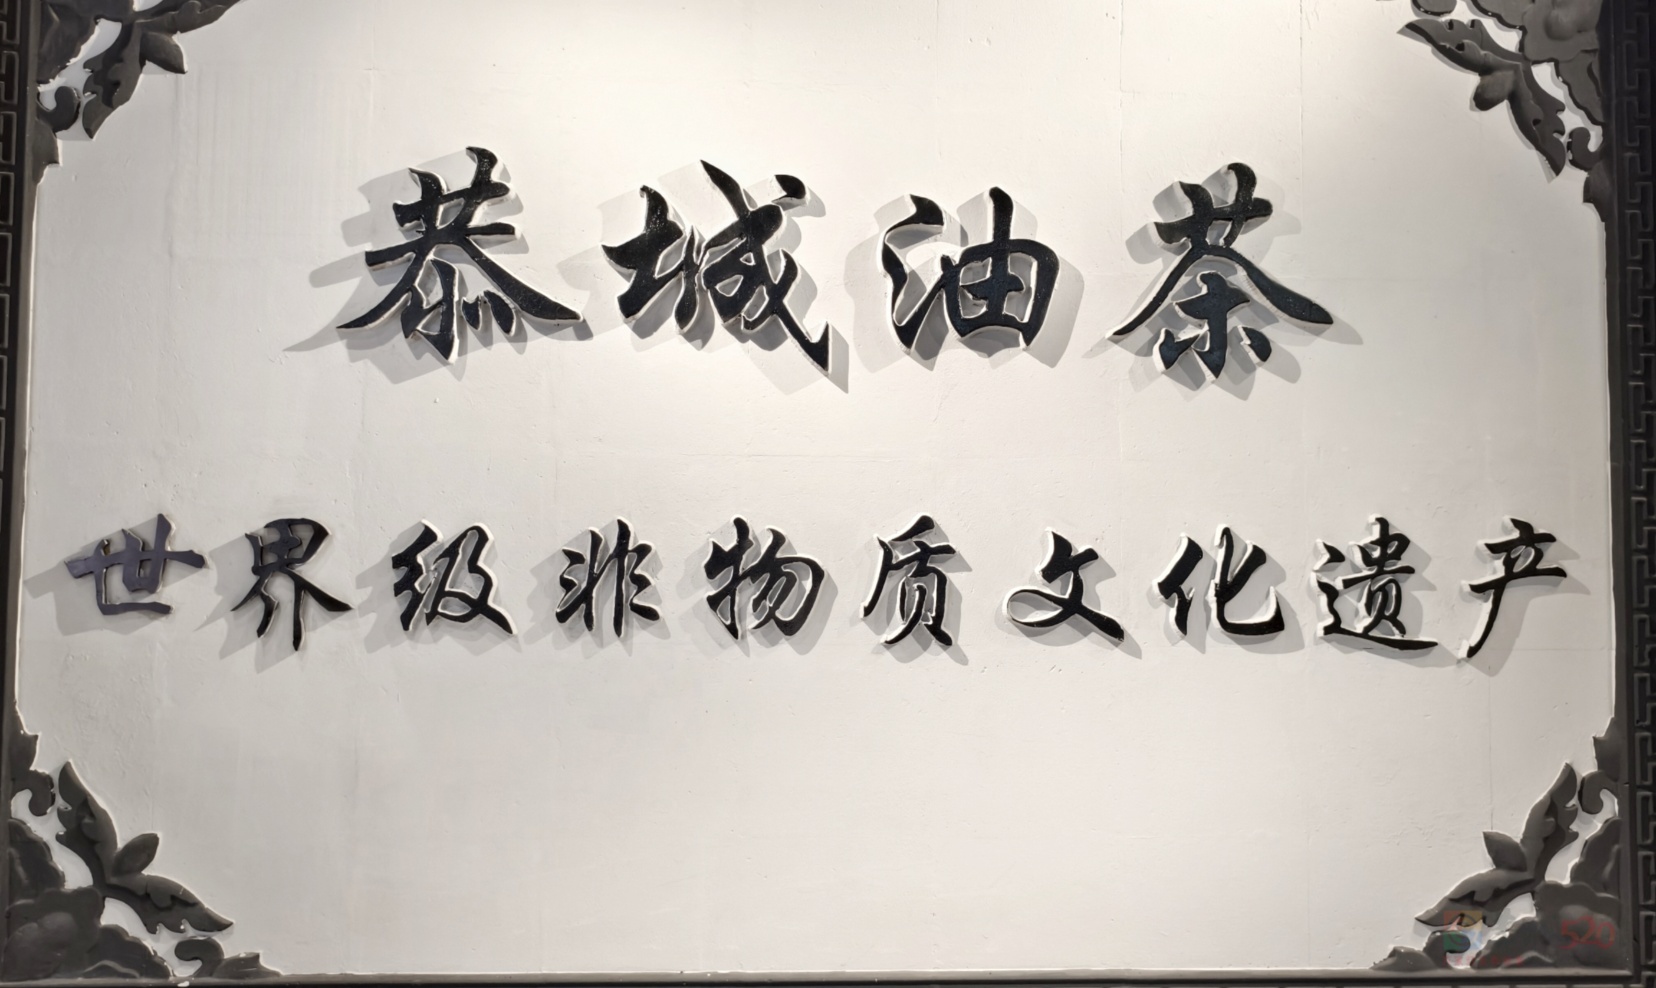 恭城油茶
世界级非物质文化遗产
520